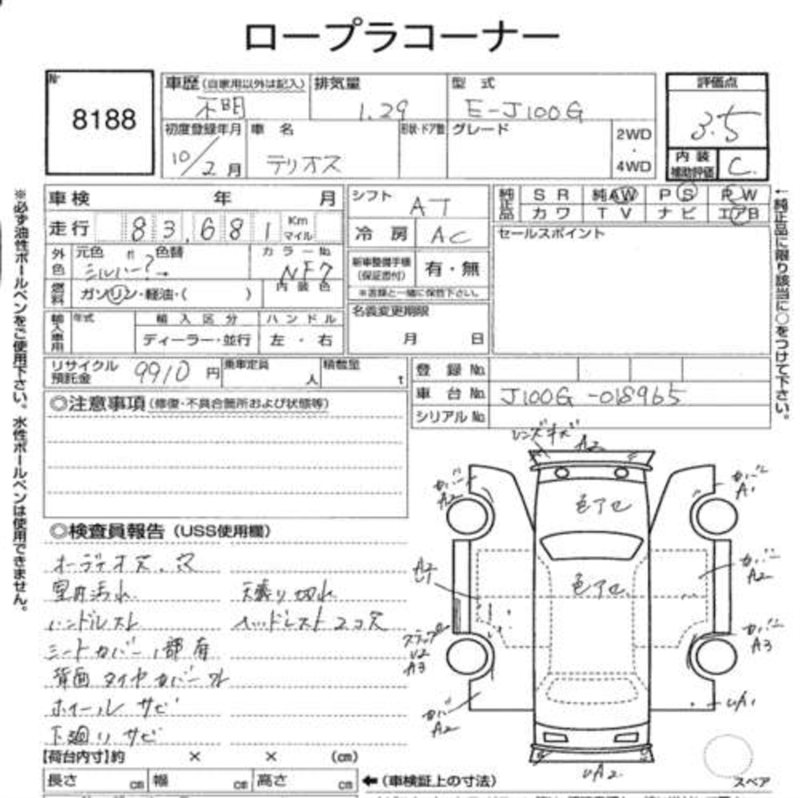 ロープラコーナー
№ 8188
車歴 (自家用以外は記入) 不明
排気量 1.29
型式 E-J100G
評価点 3.5
初度登録年月 10/2月
車名 テリオス
形状・ドア数
グレード
2WD
・
4WD
内装補助評価 C
車検 年 月
シフト AT
純正品 SR 純AW PS PW
カワ TV ナビ エアB
走行 83,681 Km マイル
冷房 AC
セールスポイント
外色 元色 〃 色替 シルバー?→
カラーNo. NF7
新車整備手帳(保証書付) 有・無
※書類と一緒に保管下さい。
燃料 ガソリン・軽油・( )
内装色
輸入車用 年式 輸入区分 ハンドル
ディーラー・並行 左・右
名義変更期限
月 日
リサイクル預託金 9910円
乗車定員 人
積載量 t
登録 №
車台 № J100G-018965
シリアル №
◎注意事項 (修復・不具合箇所および状態等)
◎検査員報告 (USS使用欄)
オーディオ欠.穴
室内汚れ 天張り切れ
ハンドルスレ ヘッドレスト2コ欠
シートカバー1部有
背面タイヤカバーワレ
ホイールサビ
下廻りサビ
レンズキズ A2
カバーA2
カバーA1
色アセ
色アセ
カバーA2
カバーA3
ステップ U2 A3
カバーA2
UA1
UA2
スペア
【荷台内寸】約 × × (cm)
長さ cm 幅 cm 高さ cm
←(車検証上の寸法)
※必ず油性ボールペンをご使用下さい。水性ボールペンは使用できません。
←純正品に限り該当に○をつけて下さい。